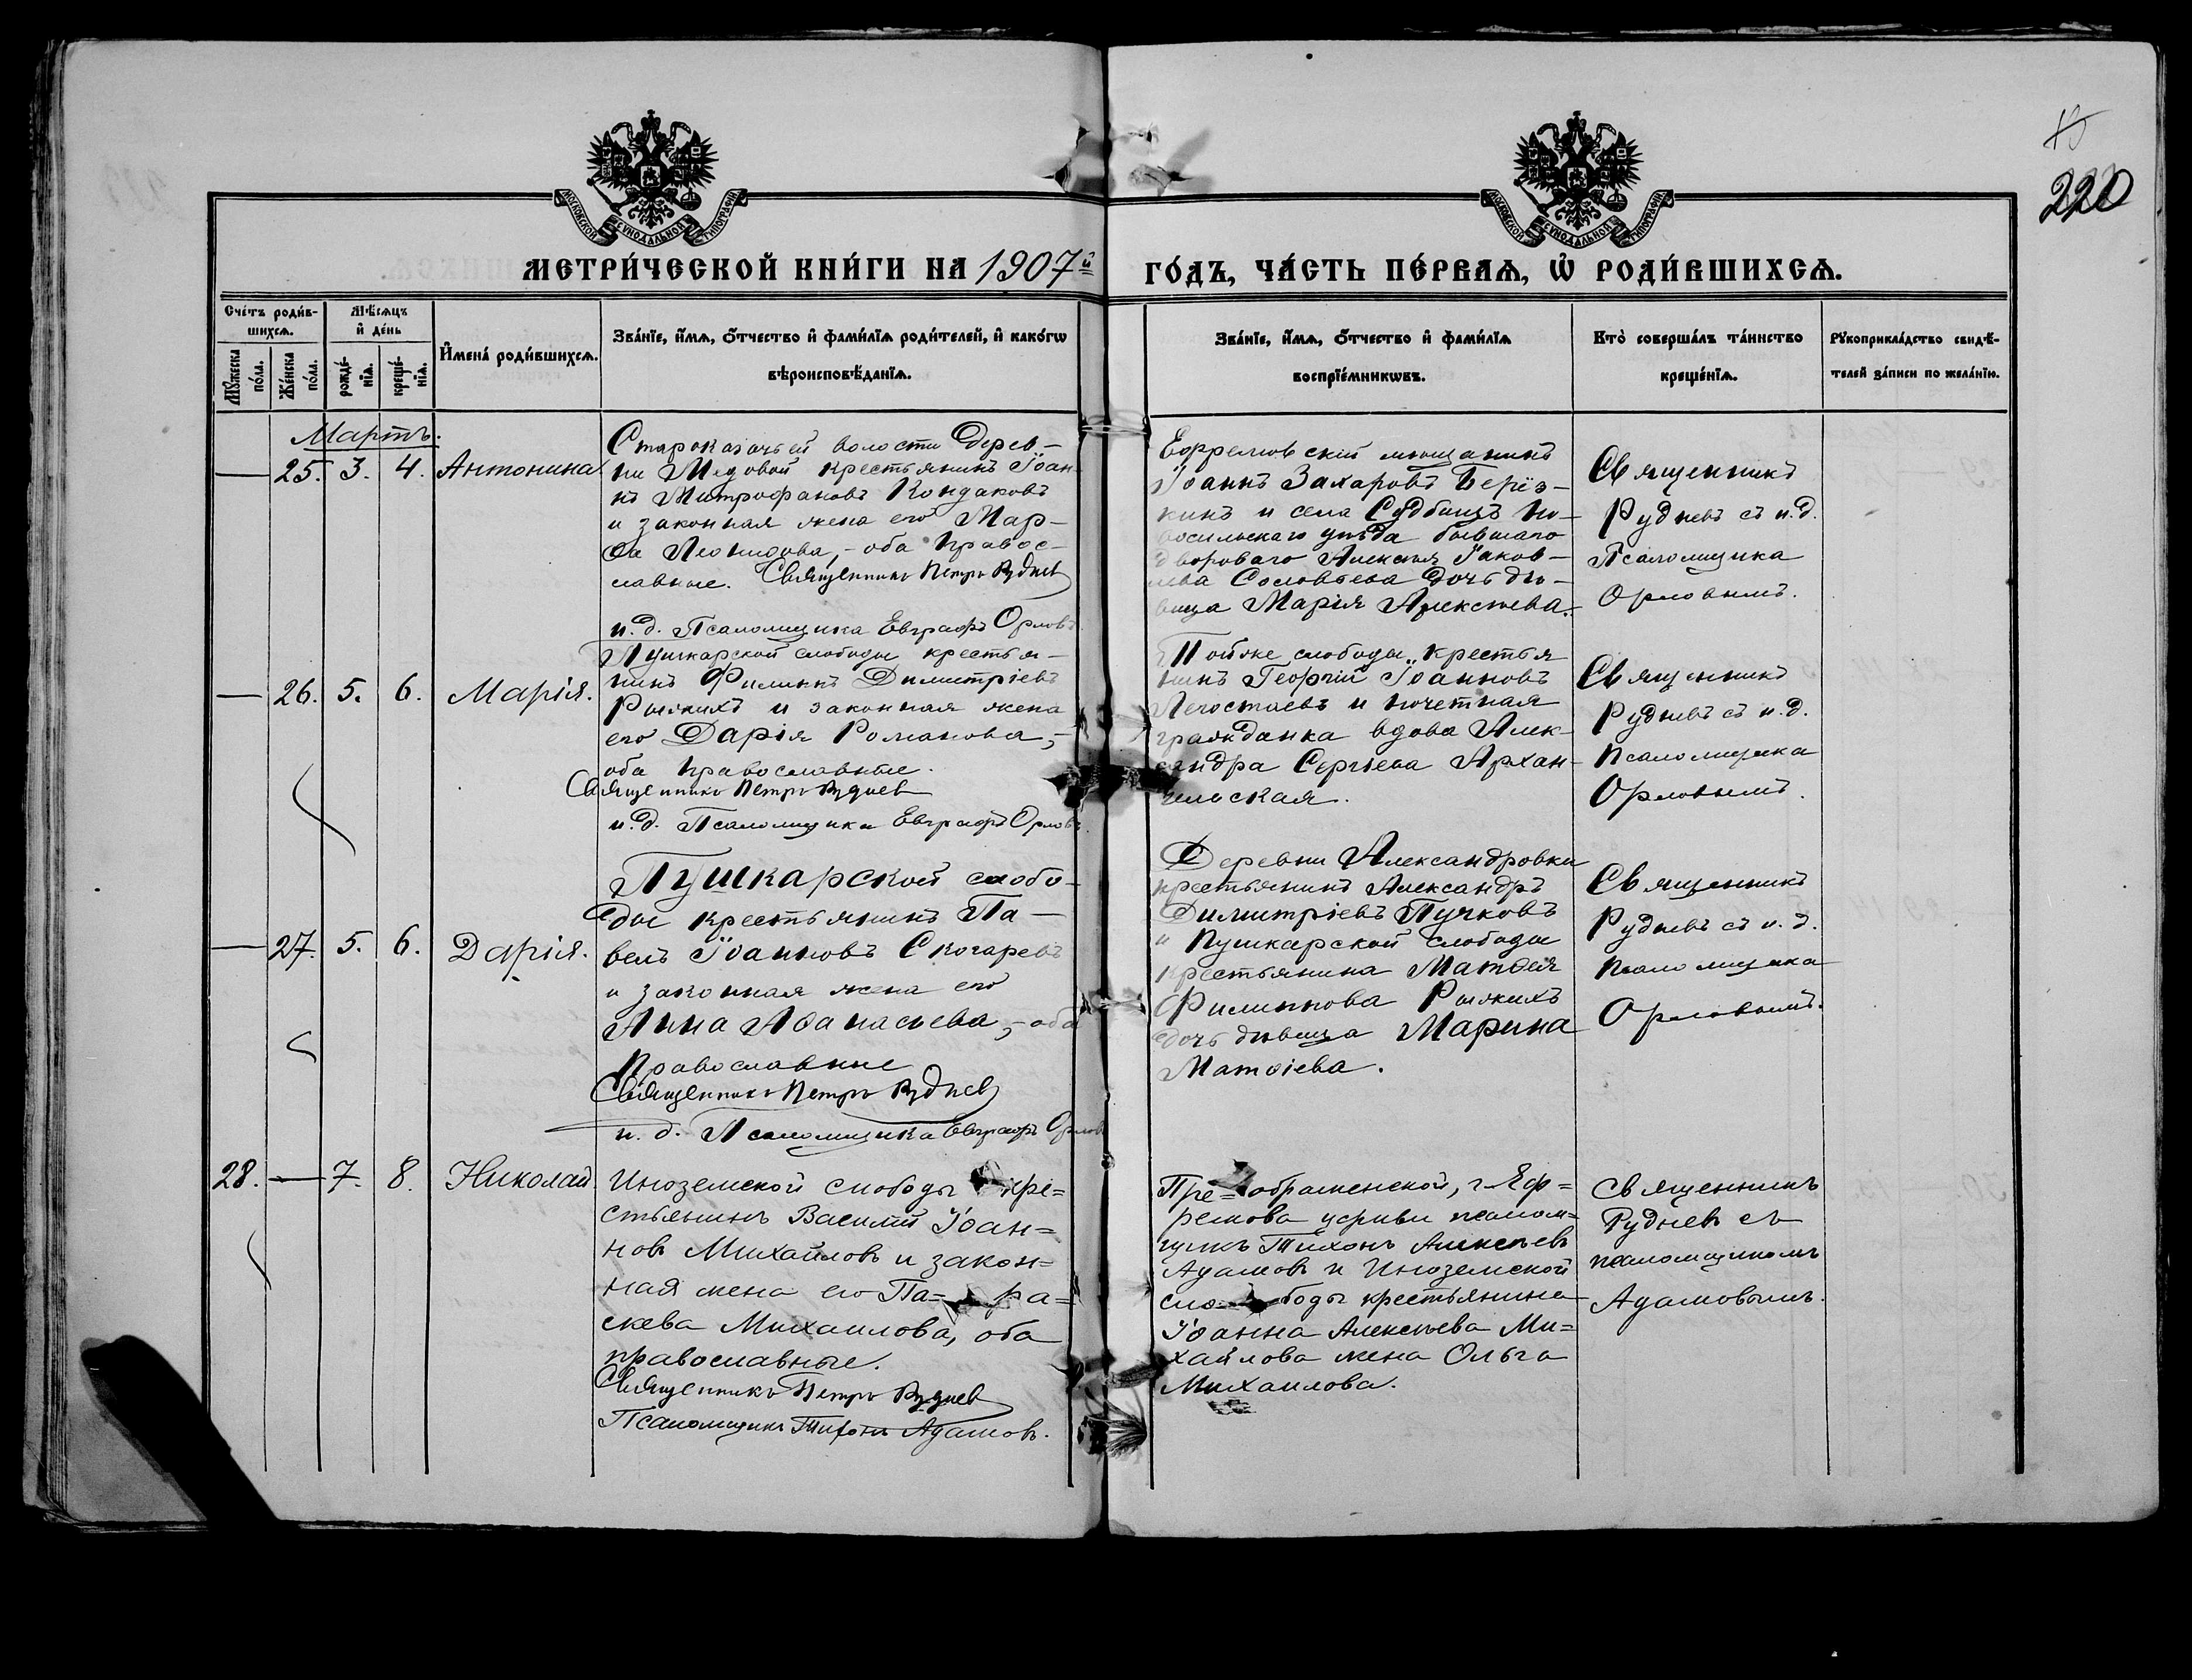 220
МОСКОВСКОЙ СУНОДАЛЬНОЙ ТИПОГРАФІИ
МОСКОВСКОЙ СУНОДАЛЬНОЙ ТИПОГРАФІИ
МЕТРИ́ЧЕСКОЙ КНИ́ГИ НА 1907й
ГО́ДЪ, ЧА́СТЬ ПЕ́РВАѦ, Ѡ҆ РОДИ́ВШИХСѦ.
Сче́тъ роди́в-
шихсѧ.
Мꙋ́жеска
по́ла.
Же́нска
по́ла.
Мѣ́сѧцъ
и҆ де́нь
рожде́-
нїѧ.
креще́-
нїѧ.
И҆мена̀ роди́вшихсѧ.
Зва́нїе, и҆́мѧ, ѻ҆́тчество и҆ фами́лїѧ роди́телей, и҆ како́гѡ
вѣроисповѣ́данїѧ.
Зва́нїе, и҆́мѧ, ѻ҆́тчество и҆ фами́лїѧ
воспрїе́мникѡвъ.
Кто̀ соверша́лъ та́инство
креще́нїѧ.
Рꙋкоприкла́дство свидѣ́-
телей за́писи по жела́нїю.
Мартъ.
— 25. 3. 4. Антонина.
Староказачьей волости дерев-
ни Медовой крестьянинъ Іоан-
нъ Митрофановъ Кондаковъ
и законная жена его Мар-
ѳа Леонидова,- оба правос-
лавные. Священникъ Петръ Руднев
и.д. Псаломщика Евграфъ Орловъ
Ефремовскій мѣщанинъ
Іоаннъ Захаровъ Берёз-
кинъ и села Судбищъ Но-
восильскаго уѣзда бывшаго
двороваго Алексѣя Іаков-
лева Соловьева дочь дѣ-
вица Марія Алексѣева.
Священникъ
Рудневъ съ и.д.
Псаломщика
Орловымъ.
— 26. 5. 6. Марія.
Пушкарской слободы крестья-
нинъ Филиппъ Димитріевъ
Рыжихъ и законная жена
его Дарія Романова,-
оба православные.
Священникъ Петръ Руднев
и.д. Псаломщика Евграфъ Орловъ.
Той же слободы крестья
нинъ Георгій Іоанновъ
Легостаевъ и почетная
гражданка вдова Алек-
сандра Сергіева Архан-
гельская.
Священникъ
Рудневъ съ и.д.
Псаломщика
Орловымъ.
— 27. 5. 6. Дарія.
Пушкарской слобо-
ды крестьянинъ Па-
велъ Іоанновъ Скогаревъ
и законная жена его
Анна Аѳанасьева,- оба
Православные
Священникъ Петръ Руднев
и.д. Псаломщика Евграфъ Орловъ
Деревни Александровки
крестьянинъ Александръ
Димитріевъ Пучковъ
и Пушкарской слободы
крестьянина Матѳея
Филиппова Рыжихъ
дочь дѣвица Марина
Матѳіева.
Священникъ
Рудневъ съ и.д.
псаломщика
Орловымъ.
28. — 7. 8. Николай.
Иноземской слободы кре-
стьянинъ Василій Іоан=
новъ Михайловъ и закон=
ная жена его Па= ра=
скева Михаилова, оба
православные.
Священникъ Петръ Руднев
Псаломщикъ Тихонъ Адамовъ.
Пре= ображенской, г. Еф=
ремова церкви псалом=
щикъ Тихонъ Алексѣевъ
Адамовъ и Иноземской
сло- боды крестьянина
Іоанна Алексѣева Ми=
хайлова жена Ольга
Михаилова.
Священникъ
Рудневъ съ
псаломщикомъ
Адамовымъ.